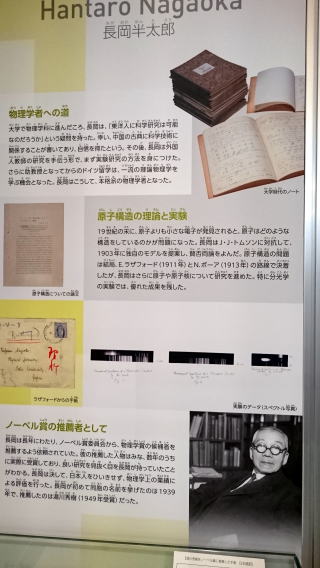 Hantaro Nagaoka
長岡半太郎
物理学者への道
大学で物理学科に進んだころ、長岡は、「東洋人に科学研究は可能
なのだろうか」という疑問を持った。幸い、中国の古典に科学技術に
関係することが書いてあり、自信を得たという。その後、長岡は外国
人教師の研究を手伝う形で、まず実験研究の方法を身につけた。
さらに助教授となってからのドイツ留学は、一流の理論物理学を
学ぶ機会となった。長岡はこうして、本格派の物理学者となった。
大学時代のノート
原子構造の理論と実験
19世紀の末に、原子よりも小さな電子が発見されると、原子はどのような
構造をしているのかが問題になった。長岡はJ・J・トムソンに対抗して、
1903年に独自のモデルを提案し、賛否両論をよんだ。原子構造の問題
は結局、E.ラザフォード(1911年)とN.ボーア(1913年)の路線で決着
したが、長岡はさらに原子や原子核について研究を進めた。特に分光学
の実験では、優れた成果を残した。
原子構造についての論文
ラザフォードからの手紙
実際のデータ(スペクトル写真)
ノーベル賞の推薦者として
長岡は長年にわたり、ノーベル賞委員会から、物理学賞の候補者を
推薦するよう依頼されていた。彼の推薦した人物はみな、数年のうち
に実際に受賞しており、良い研究を見抜く目を長岡が持っていたこと
がわかる。長岡は決して、日本人をひいきせず、物理学上の業績に
よる評価を行った。長岡が初めて同胞の名前を挙げたのは1939
年で、推薦したのは湯川秀樹(1949年受賞)だった。